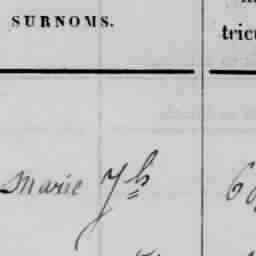 SURNOMS.
tric
Marie Jh 6